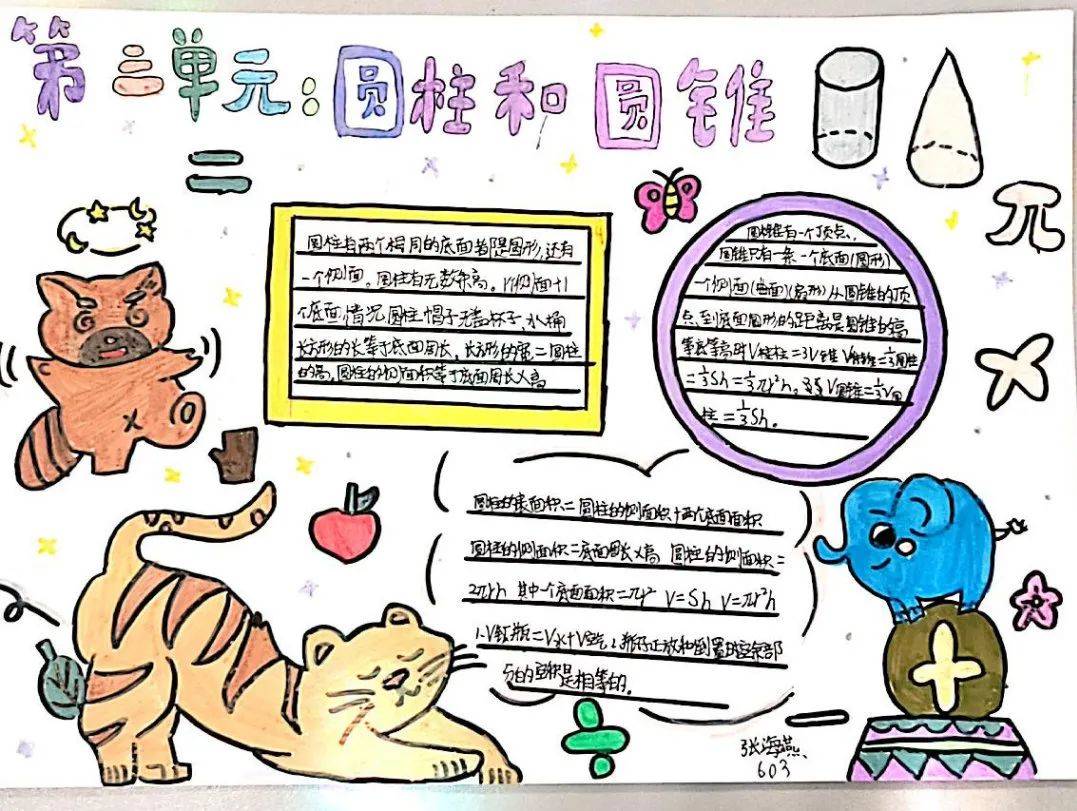 第三单元：圆柱和圆锥
圆柱有两个相同的底面都是圆形，还有
一个侧面。圆柱有无数条高。1个侧面+1
个底面情况圆柱帽子无盖杯子、水桶
长方形的长等于底面周长，长方形的宽=圆柱
的高，圆柱的侧面积等于底面周长×高
圆锥有一个顶点，
圆锥只有一条一个底面(圆形)
一个侧面(曲面)(扇形)从圆锥的顶
点到底面圆形的距离是圆锥的高
等底等高时V柱=3V锥 V圆锥=⅓圆柱
=⅓Sh=⅓πr²h。V圆锥=⅓V圆
柱=⅓Sh。
圆柱的表面积=圆柱的侧面积+两个底面面积
圆柱的侧面积=底面周长×高 圆柱的侧面积=
2πrh 其中一个底面面积=πr² V=Sh V=πr²h
1.V瓶=V水+V空 2.瓶子正放和倒置时空余部
分的容积是相等的。
π
张海燕
603